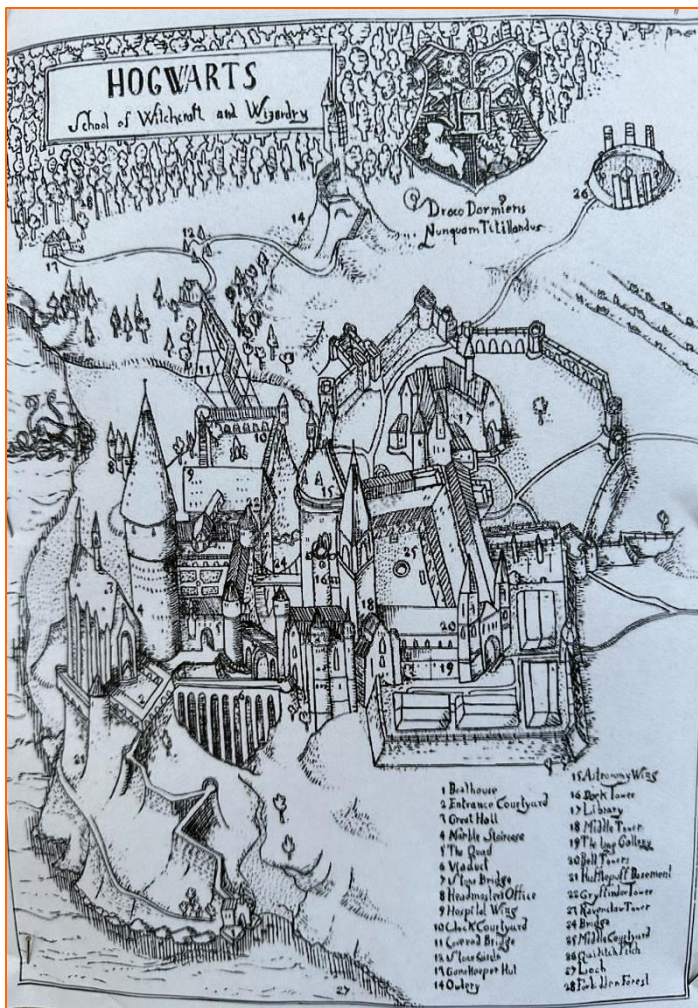 HOGWARTS
School of Witchcraft and Wizardry
H
Draco Dormiens
Nunquam Titillandus
28
14
26
12
13
11
17
10
8
9
15
3
4
24
25
16
18
20
2
5
6
19
7
21
27
1 Boathouse
2 Entrance Courtyard
3 Great Hall
4 Marble Staircase
5 The Quad
6 Viaduct
7 Stone Bridge
8 Headmasters Office
9 Hospital Wing
10 Clock Courtyard
11 Covered Bridge
12 Stone Circle
13 Gamekeeper Hut
14 Owlery
15 Astronomy Wing
16 Dark Tower
17 Library
18 Middle Tower
19 The Long Gallery
20 Bell Towers
21 Hufflepuff Basement
22 Gryffindor Tower
23 Ravenclaw Tower
24 Bridge
25 Middle Courtyard
26 Quidditch Pitch
27 Loch
28 Forbidden Forest